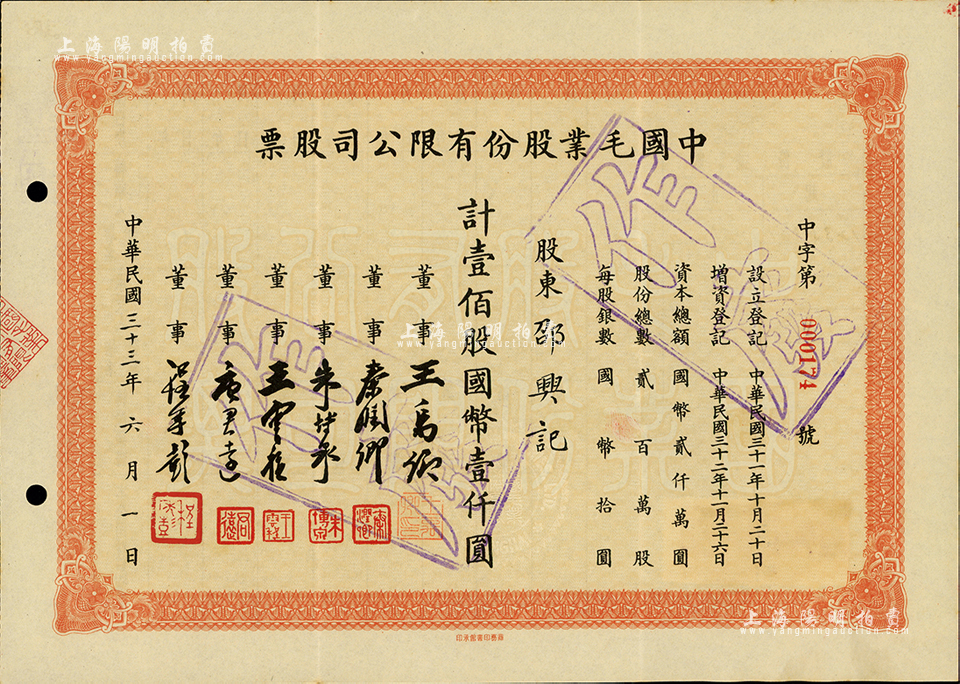 上海陽明拍賣
www.yangmingauction.com
中國毛業股份有限公司股票
中字第000174號
設立登記 中華民國三十一年十月二十日
增資登記 中華民國三十二年十一月二十六日
資本總額 國幣貳仟萬圓
股份總數 貳百萬股
每股銀數 國幣拾圓
股東 邵興記
計壹佰股國幣壹仟圓
董事 王禹卿
董事
董事 朱博泉
董事 王雲程
董事 唐君遠
董事 程年彭
中華民國三十三年六月一日
作廢
作廢
上海陽明拍賣
www.yangmingauction.com
商務印書館承印
上海陽明拍賣
www.yangmingauction.com